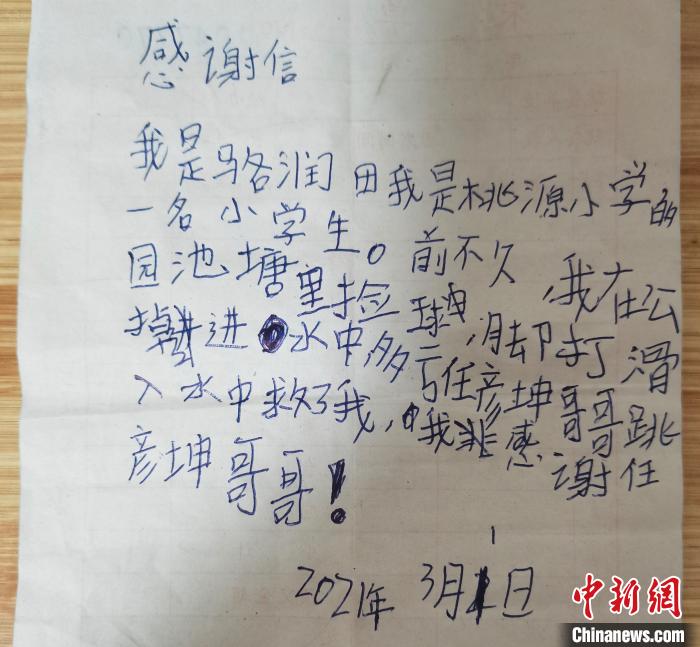 感谢信
我是骆润田我是桃源小学的
一名小学生。前不久,我在公
园池塘里捡球,脚打滑
掉进水中,多亏任彦坤哥哥跳
入水中救了我,我感谢任
彦坤哥哥!
2021年3月1日
中新网
Chinanews.com